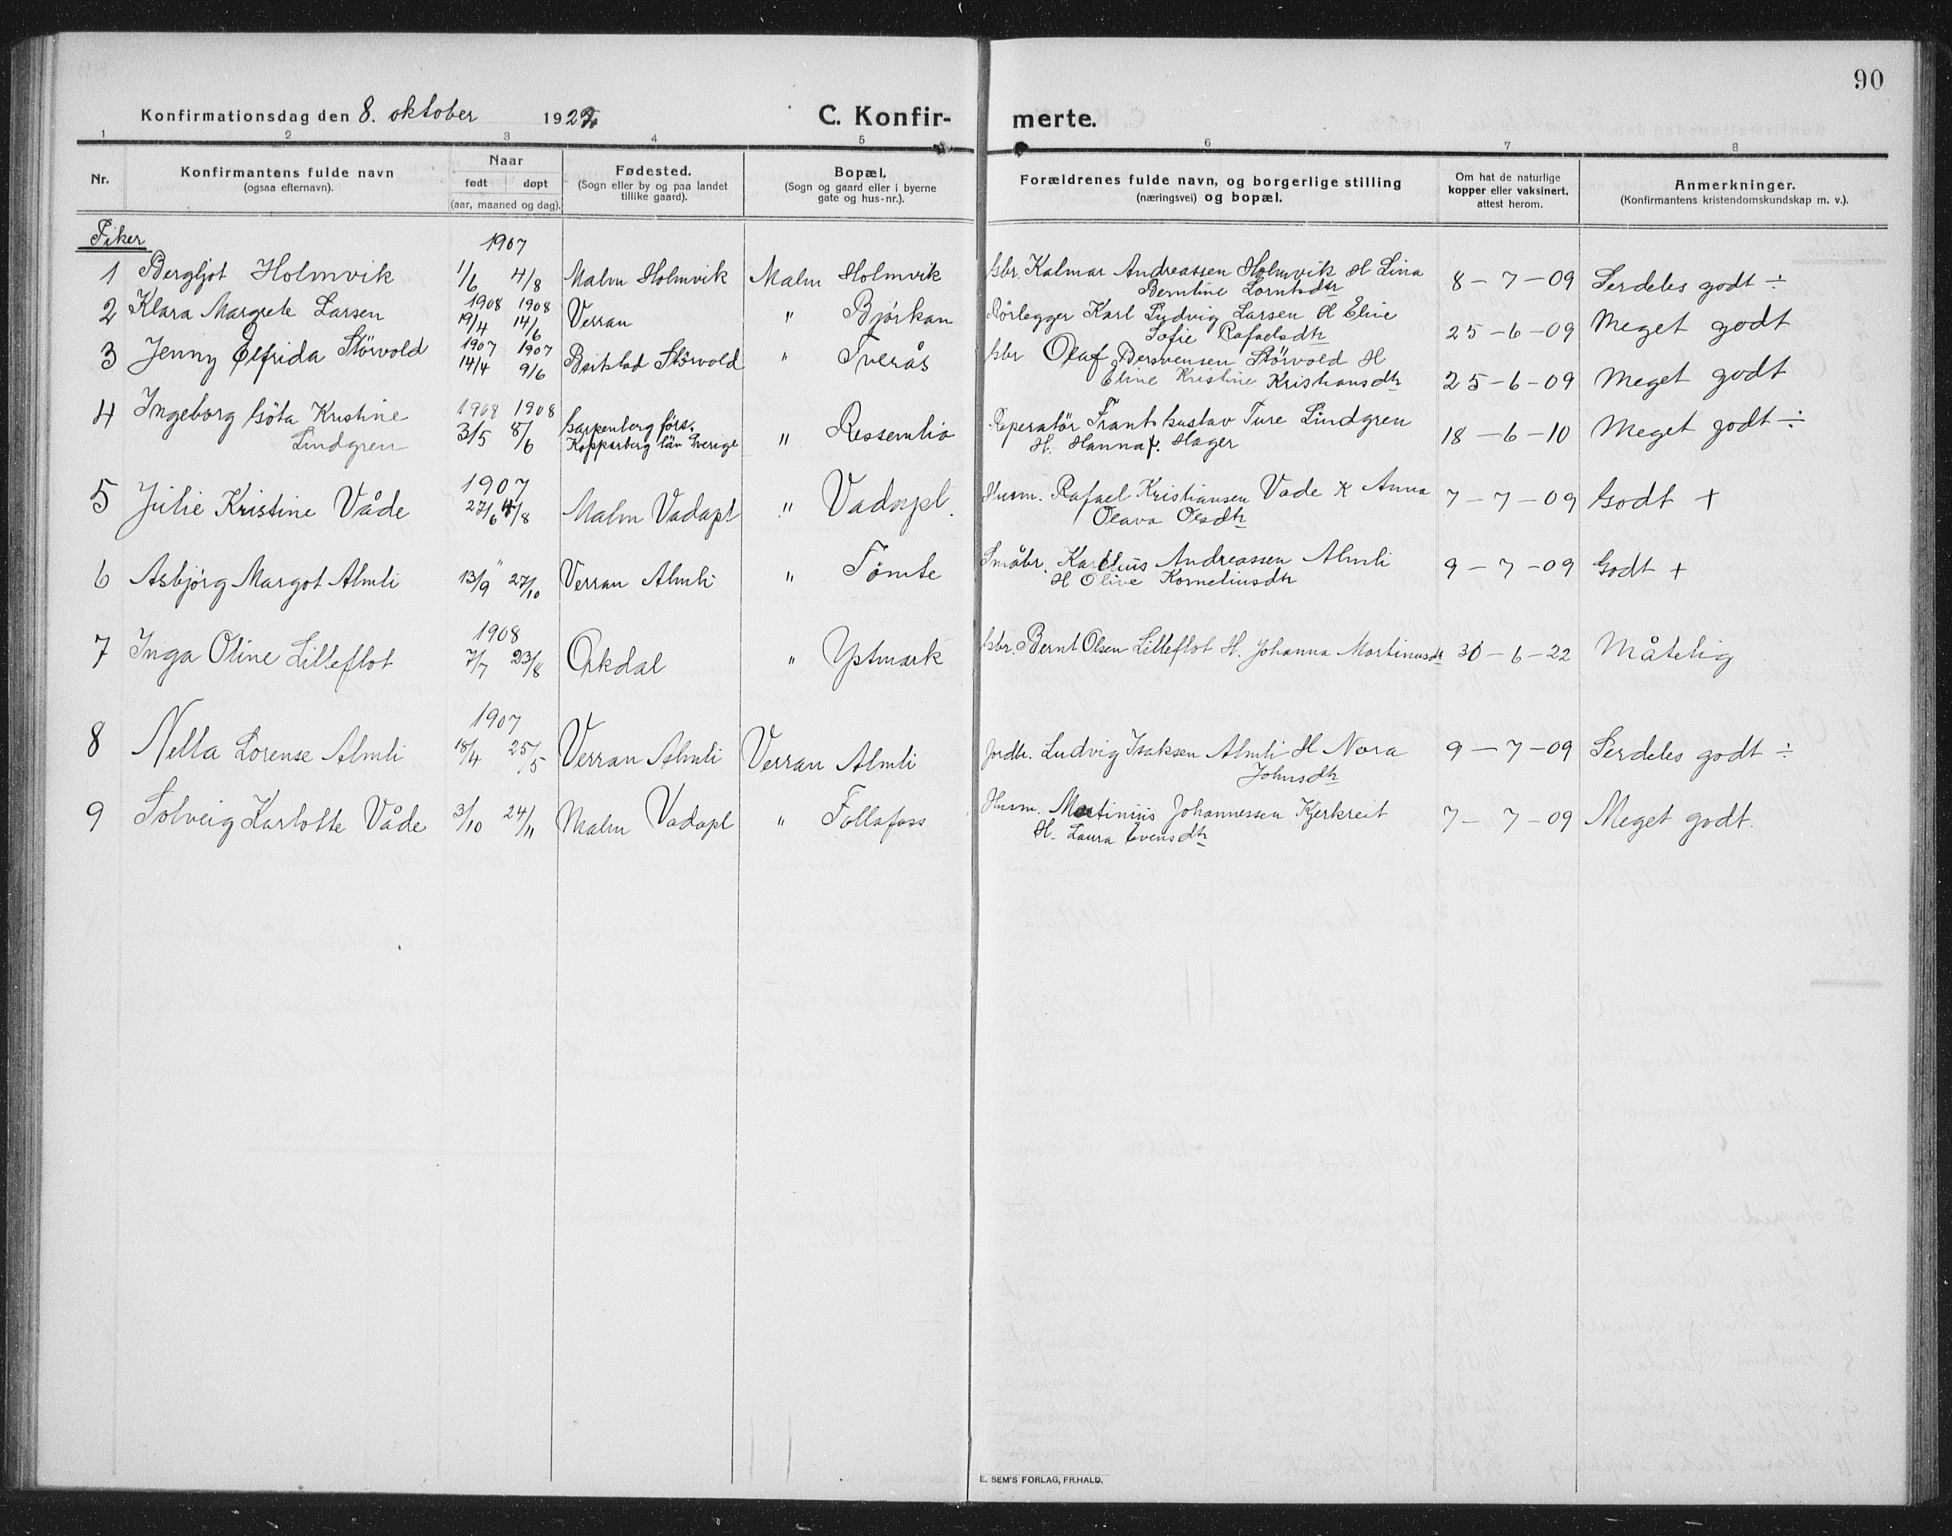 90
Konfirmationsdag den 8. oktober 1922
C. Konfir- merte.
1 2 3 4 5 6 7 8
Nr.
Konfirmantens fulde navn
(ogsaa efternavn).
Naar
født døpt
(aar, maaned og dag).
Fødested.
(Sogn eller by og paa landet
tillike gaard).
Bopæl.
(Sogn og gaard eller i byerne
gate og hus-nr.).
Forældrenes fulde navn, og borgerlige stilling
(næringsvei) og bopæl.
Om hat de naturlige
kopper eller vaksinert,
attest herom.
Anmerkninger.
(Konfirmantens kristendomskundskap m. v.).
Piker
1907
1 Bergljot Holmvik 1/6 4/8 Malm Holmvik Malm Holmvik Gbr. Kalmar Andreassen Holmvik H Lina 8-7-09 Serdeles godt ÷
Berntine Lorntsdtr
1908 1908
2 Klara Margrete Larsen 19/4 14/6 Verran " Bjørkan Rørlegger Karl Ludvig Larsen H Eline 25-6-09 Meget godt
Sofie Rafaelsdtr
1907 1907
3 Jenny Elfrida Størvold 14/4 9/6 Beitstad Størvold " Tverås Gbr Olaf Bersvensen Størvold H
Eline Kristine Kristiansdtr 25-6-09 Meget godt
1908 1908
4 Ingeborg Göta Kristine 3/5 8/6 Garpenberg förs. " Ressemlia Reperatør Frant Gustav Ture Lindgren 18-6-10 Meget godt ÷
Lindgren Kopparberg län Sverige H. Hanna f. Hager
1907
5 Julie Kristine Våde 27/6 4/8 Malm Vadapl " Vadapl. Husm. Rafael Kristiansen Vade H Anna 7-7-09 Godt +
Olava Olsdtr
"
6 Asbjørg Margot Almli 13/9 27/10 Verran Almli " Tømte Småbr. Karelius Andreassen Almli 9-7-09 Godt +
H Olive Korneliusdtr
1908
7 Inga Oline Lilleflot 7/7 23/8 Orkdal " Ystmark Gbr. Bernt Olsen Lilleflot H. Johanna Martinusdtr 30-6-22 Måtelig
1907
8 Nella Lorense Almli 18/4 25/5 Verran Almli Verran Almli Jordbr. Ludvig Isaksen Almli H Nora 9-7-09 Serdeles godt ÷
Johnsdtr
9 Solveig Karlotte Våde 3/10 24/11 Malm Vadapl " Follafoss Husm. Martinius Johannessen Kjerkreit 7-7-09 Meget godt.
H. Laura Evensdtr
E. SEM'S FORLAG, FR.HALD.